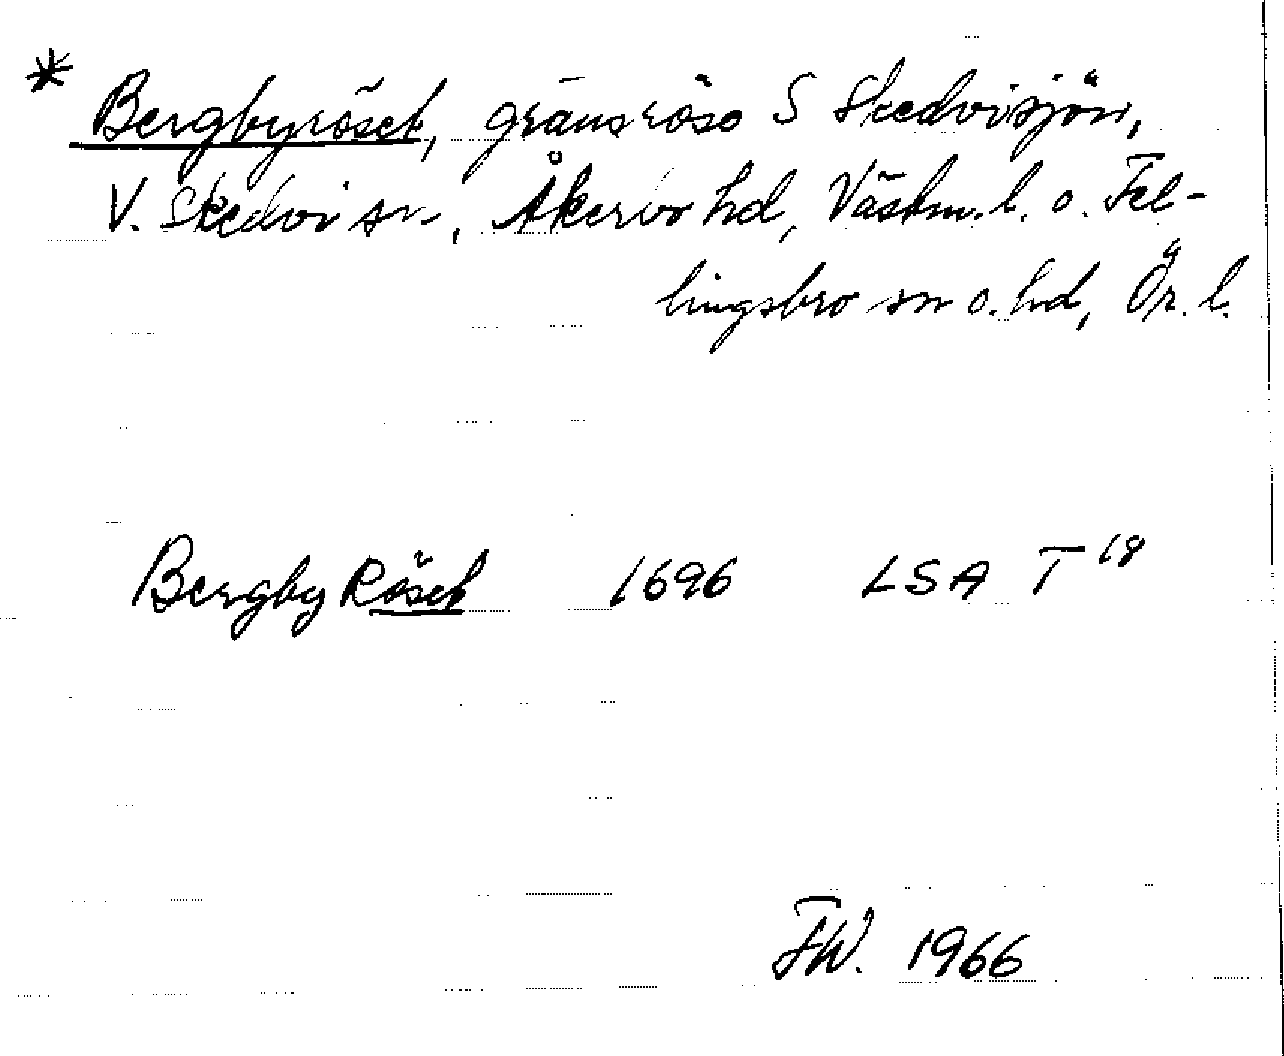 * Bergbyröset, gränsröse S Skedvisjön,
V. Skedvi sn, Åkerbo hd, Västm. l. o. Fel-
lingsbro sn o. hd, Ör. l.
Bergby Röset 1696 LSA T 18
FW. 1966